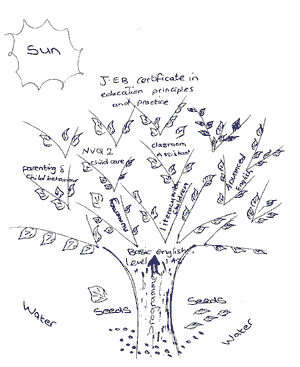 Sun
JEB certificate in
education principles
and practice
NVQ 2
child care
classroom
Assistant
parenting &
child behaviour
Advanced
English
literacy with
children
Basic english
Level
programme
Seeds
Seeds
Water
Water